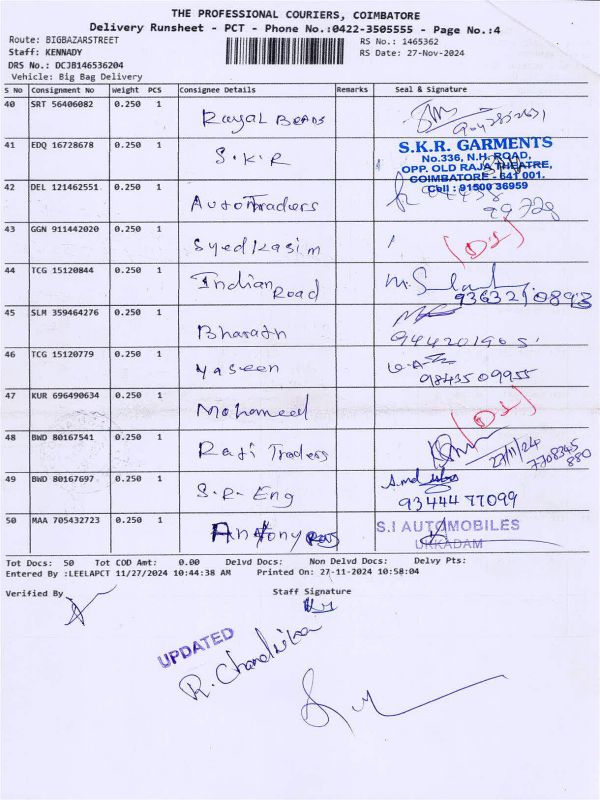 THE PROFESSIONAL COURIERS, COIMBATORE
Delivery Runsheet - PCT - Phone No.:0422-3505555 - Page No.:4
Route: BIGBAZARSTREET RS No.: 1465362
Staff: KENNADY RS Date: 27-Nov-2024
DRS No.: DCJB146536204
Vehicle: Big Bag Delivery
S No Consignment No Weight PCS Consignee Details Remarks Seal & Signature
40 SRT 56406082 0.250 1 Royal Beads
41 EDQ 16728678 0.250 1 S.K.R
S.K.R. GARMENTS
No.336, N.H. ROAD,
OPP. OLD RAJA THEATRE,
COIMBATORE - 641 001.
Cell : 91500 36959
42 DEL 121462551 0.250 1 Auto Traders
99728
43 GGN 911442020 0.250 1 Syed Kasim
44 TCG 15120844 0.250 1 Indian Road
9363210893
45 SLM 359464276 0.250 1 Bharath
46 TCG 15120779 0.250 1 Yaseen
9843509955
47 KUR 696490634 0.250 1 Mohamed
48 BWD 80167541 0.250 1 Raji Traders
27/11/24
7708345
880
49 BWD 80167697 0.250 1 S.R. Eng
9344477099
50 MAA 705432723 0.250 1 Antony Raj
S.I AUTOMOBILES
UKKADAM
Tot Docs: 50 Tot COD Amt: 0.00 Delvd Docs: Non Delvd Docs: Delvy Pts:
Entered By :LEELAPCT 11/27/2024 10:44:38 AM Printed On: 27-11-2024 10:58:04
Verified By Staff Signature
UPDATED
R. Chandrika